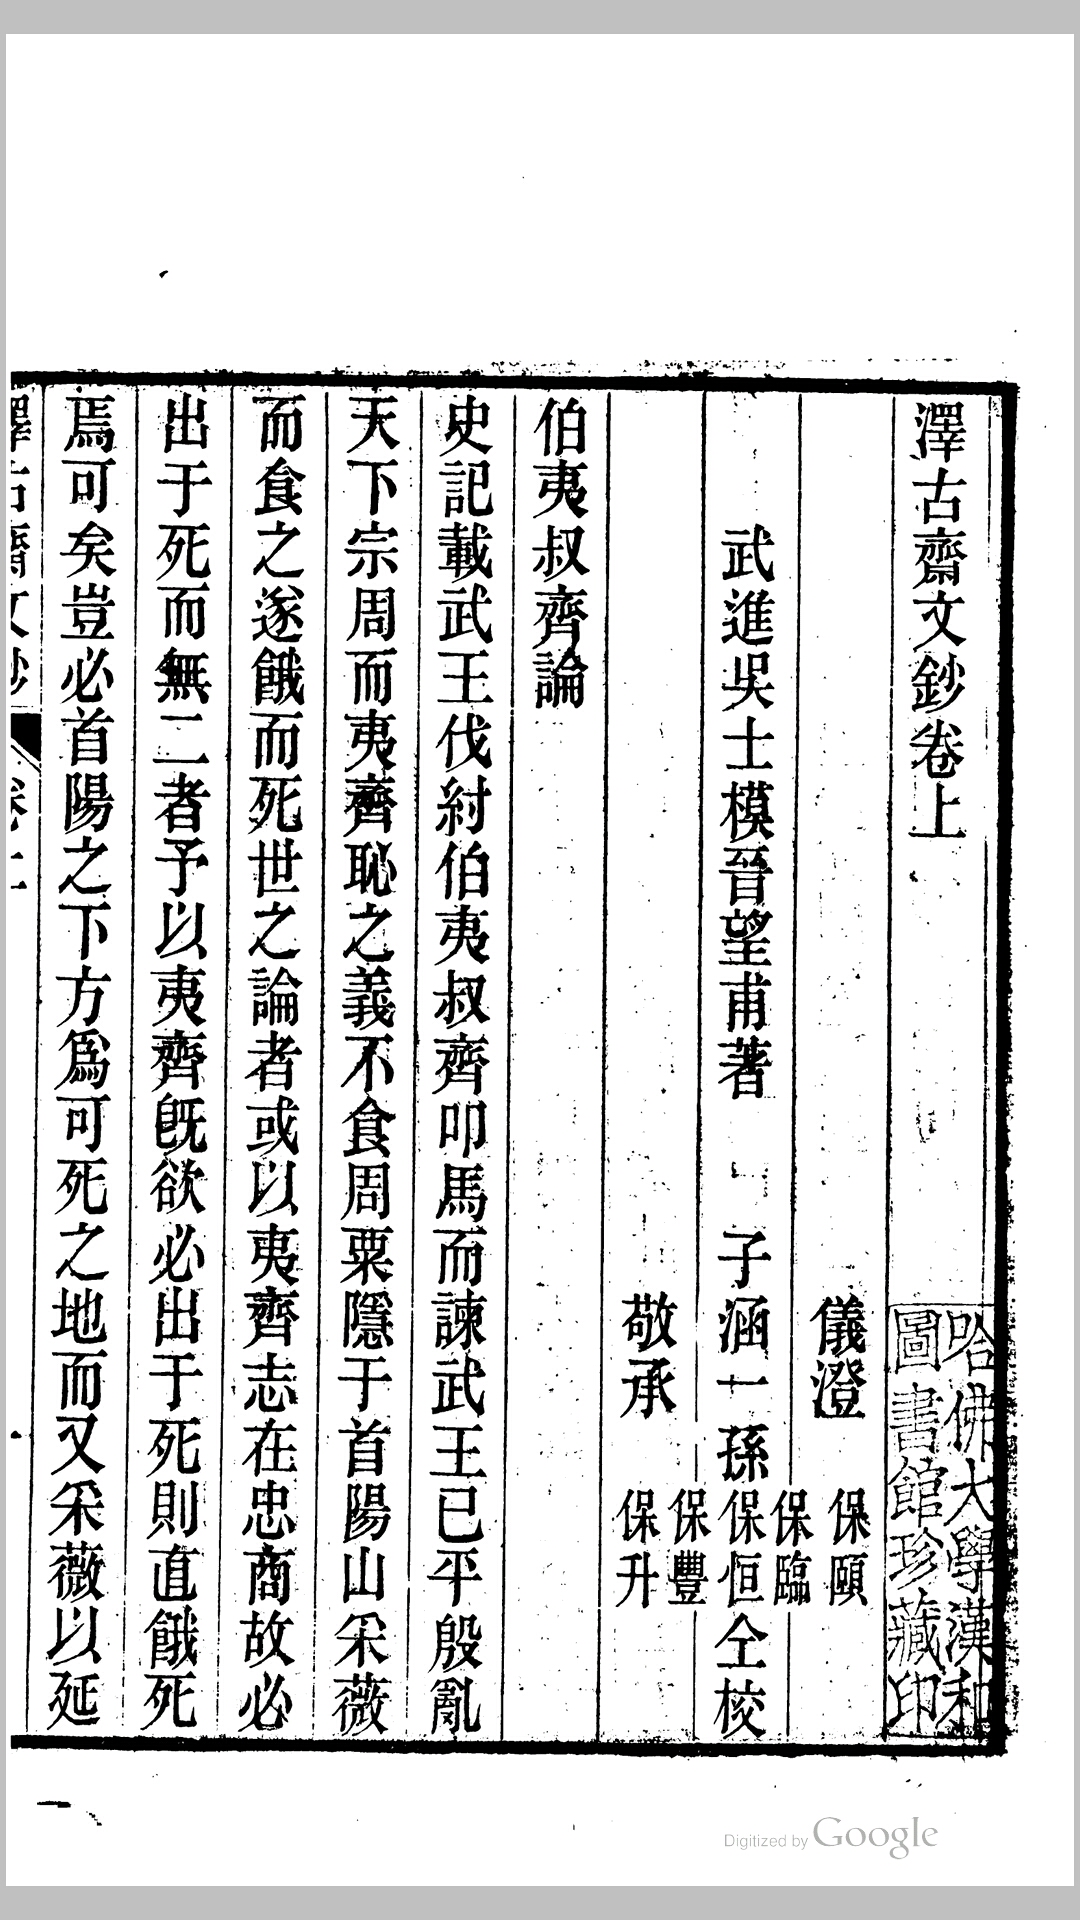 澤古齋文鈔卷上
哈佛大學漢和
圖書館珍藏印
儀澄 保頤
保臨
武進吳士模晉望甫著 子涵一孫 保恒 仝校
保豐
敬承 保升
伯夷叔齊論
史記載武王伐紂伯夷叔齊叩馬而諫武王已平殷亂
天下宗周而夷齊恥之義不食周粟隱于首陽山采薇
而食之遂餓而死世之論者或以夷齊志在忠商故必
出于死而無二者予以夷齊旣欲必出于死則直餓死
焉可矣豈必首陽之下方爲可死之地而又采薇以延
澤古齋文鈔 卷上 一
Digitized by Google